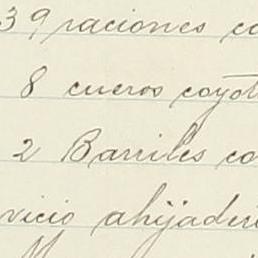 39 raciones co
8 cueros coyot
2 Barriles co
vicio ahijader